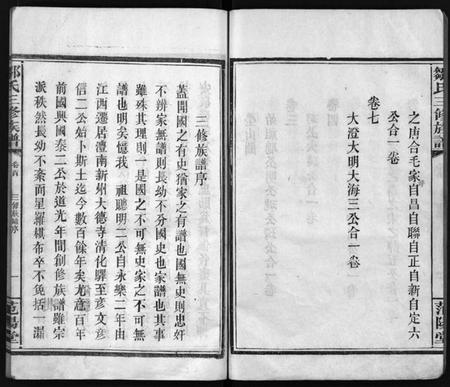 鄒氏三修族譜
范陽堂
之唐合毛家自昌自聯自正自新自定六
公合一卷
卷七
大澄大明大海三公合一卷
三修族譜序
蓋聞國之有史猶家之有譜也國無史則忠奸
不辨家無譜則長幼不分國史也家譜也其事
雖殊其理則一是國之不可無史家之不可無
譜也明矣憶我 祖聰明二公自永樂二年由
江西遷居澧南新州大德寺清化驛至彦文彦
信二公始卜斯土迄今數百餘年矣尤意百年
前國興國泰二公於道光年間創修族譜雖宗
派秩然長幼不紊而星羅棋布卒不免括一漏
鄒氏三修族譜
卷首
三修族譜序
一
范陽堂